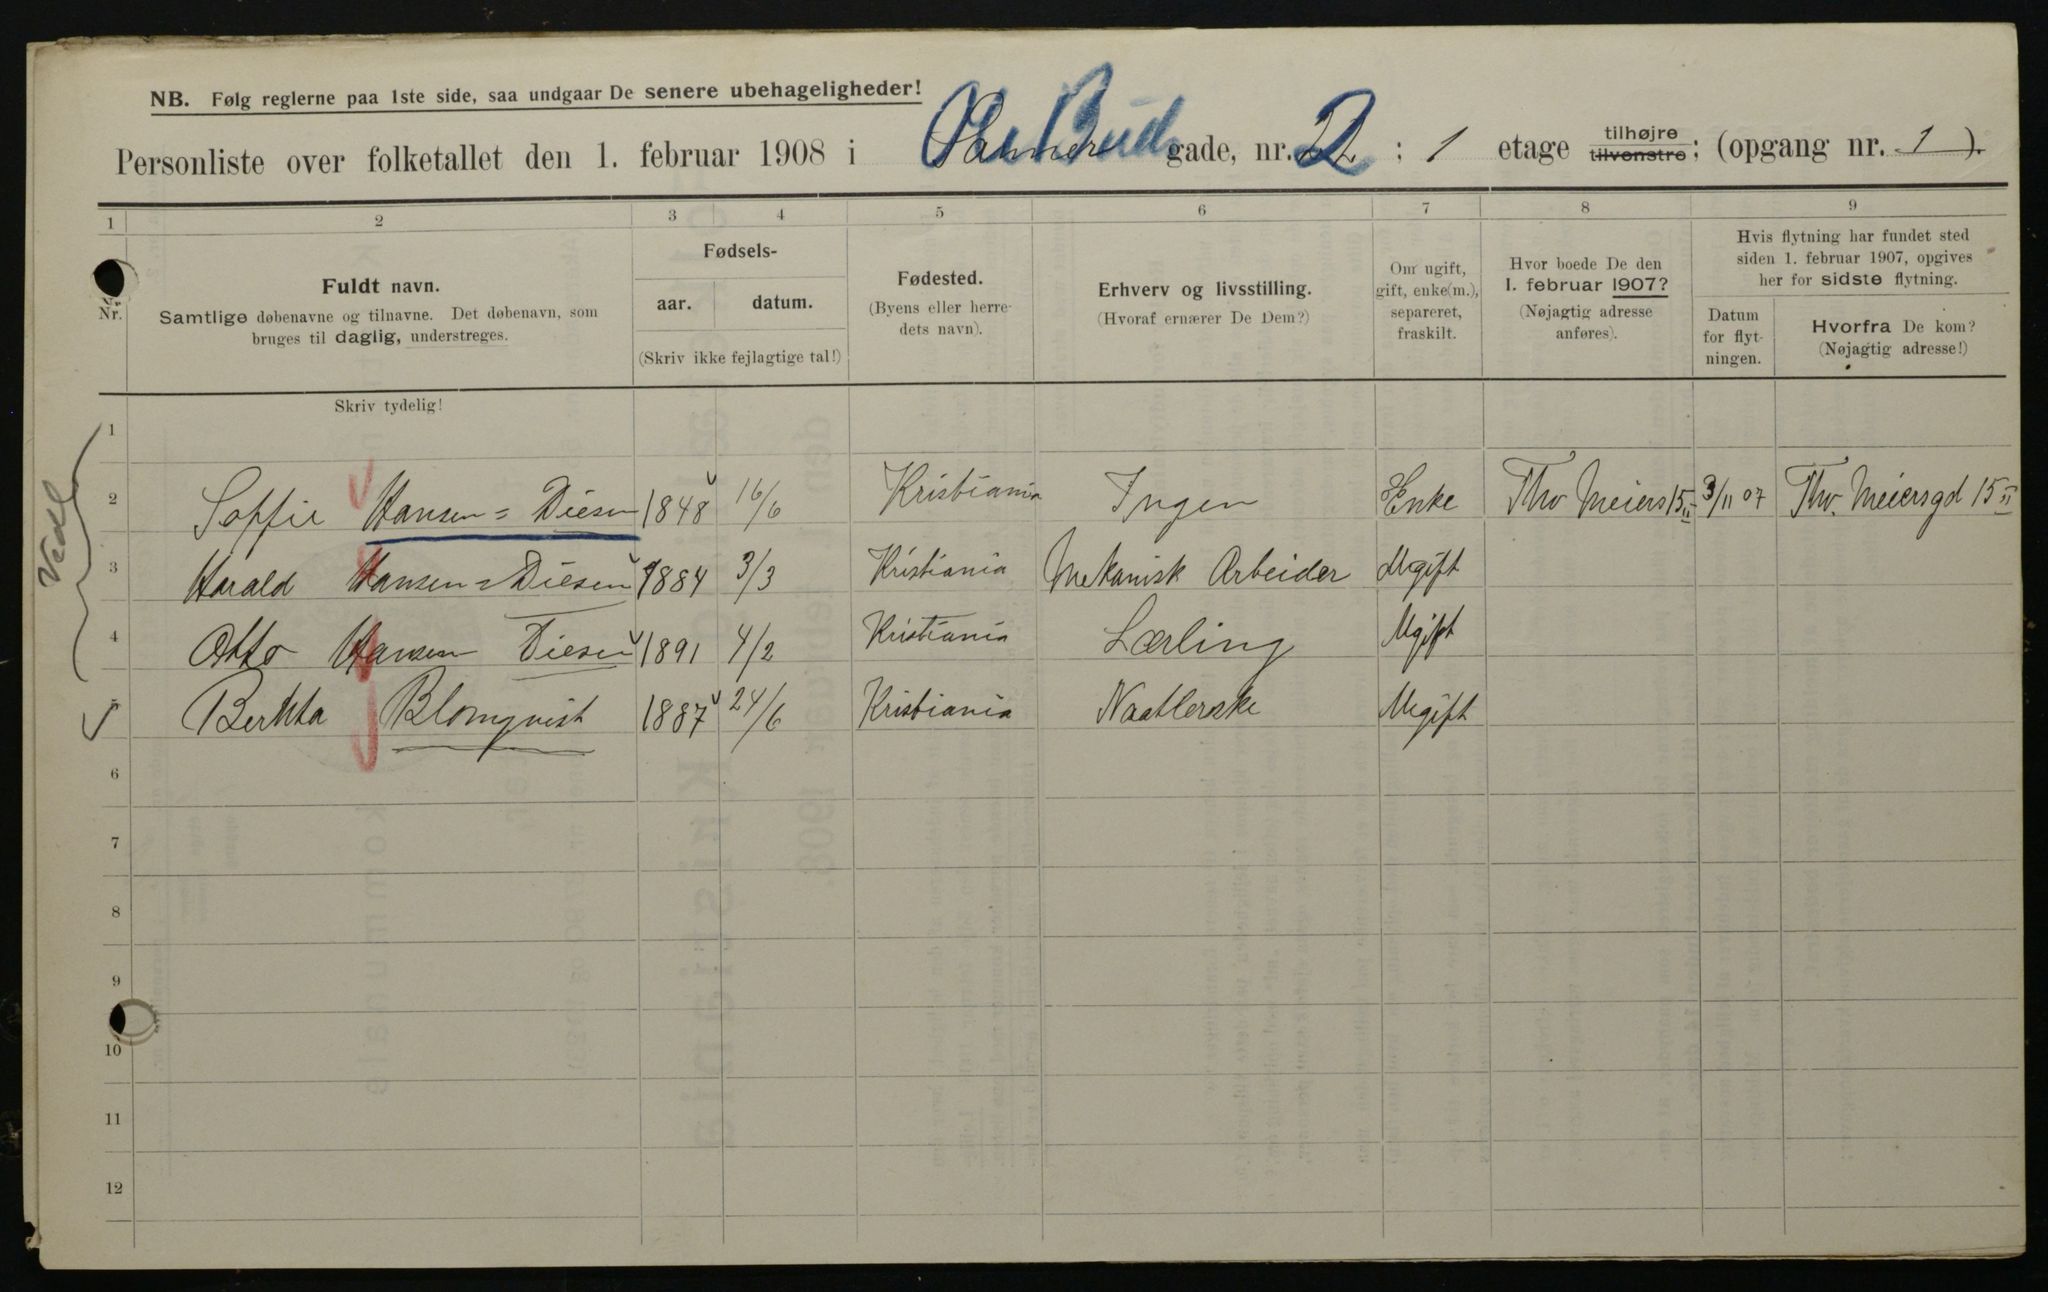 NB. Følg reglerne paa 1ste side, saa undgaar De senere ubehageligheder!
Personliste over folketallet den 1. februar 1908 i gade, nr. 2 ; 1 etage tilhøjre tilvenstre; (opgang nr. 1 ).
1 2 3 4 5 6 7 8 9
Nr.
Fuldt navn.
Samtlige døbenavne og tilnavne. Det døbenavn, som
bruges til daglig, understreges.
Skriv tydelig!
Fødsels-
aar. datum.
(Skriv ikke fejlagtige tal!)
Fødested.
(Byens eller herre-
dets navn).
Erhverv og livsstilling.
(Hvoraf ernærer De Dem?)
Om ugift,
gift, enke(m.),
separeret,
fraskilt.
Hvor boede De den
1. februar 1907?
(Nøjagtig adresse
anføres).
Hvis flytning har fundet sted
siden 1. februar 1907, opgives
her for sidste flytning.
Datum
for flyt-
ningen.
Hvorfra De kom?
(Nøjagtig adresse!)
1
2 Soffie Hansen=Diesen 1848 16/6 Kristiania Ingen Enke Thv Meiers 15 II 3/11 07 Thv. Meiersgd 15 II
3 Harald Hansen=Diesen 1884 3/3 Kristiania Mekanisk Arbeider Ugift
4 Otto Hansen Diesen 1891 4/2 Kristiania Lærling Ugift
5 Berhta Blomqvist 1887 24/6 Kristiania Naatlerske Ugift
6
7
8
9
10
11
12